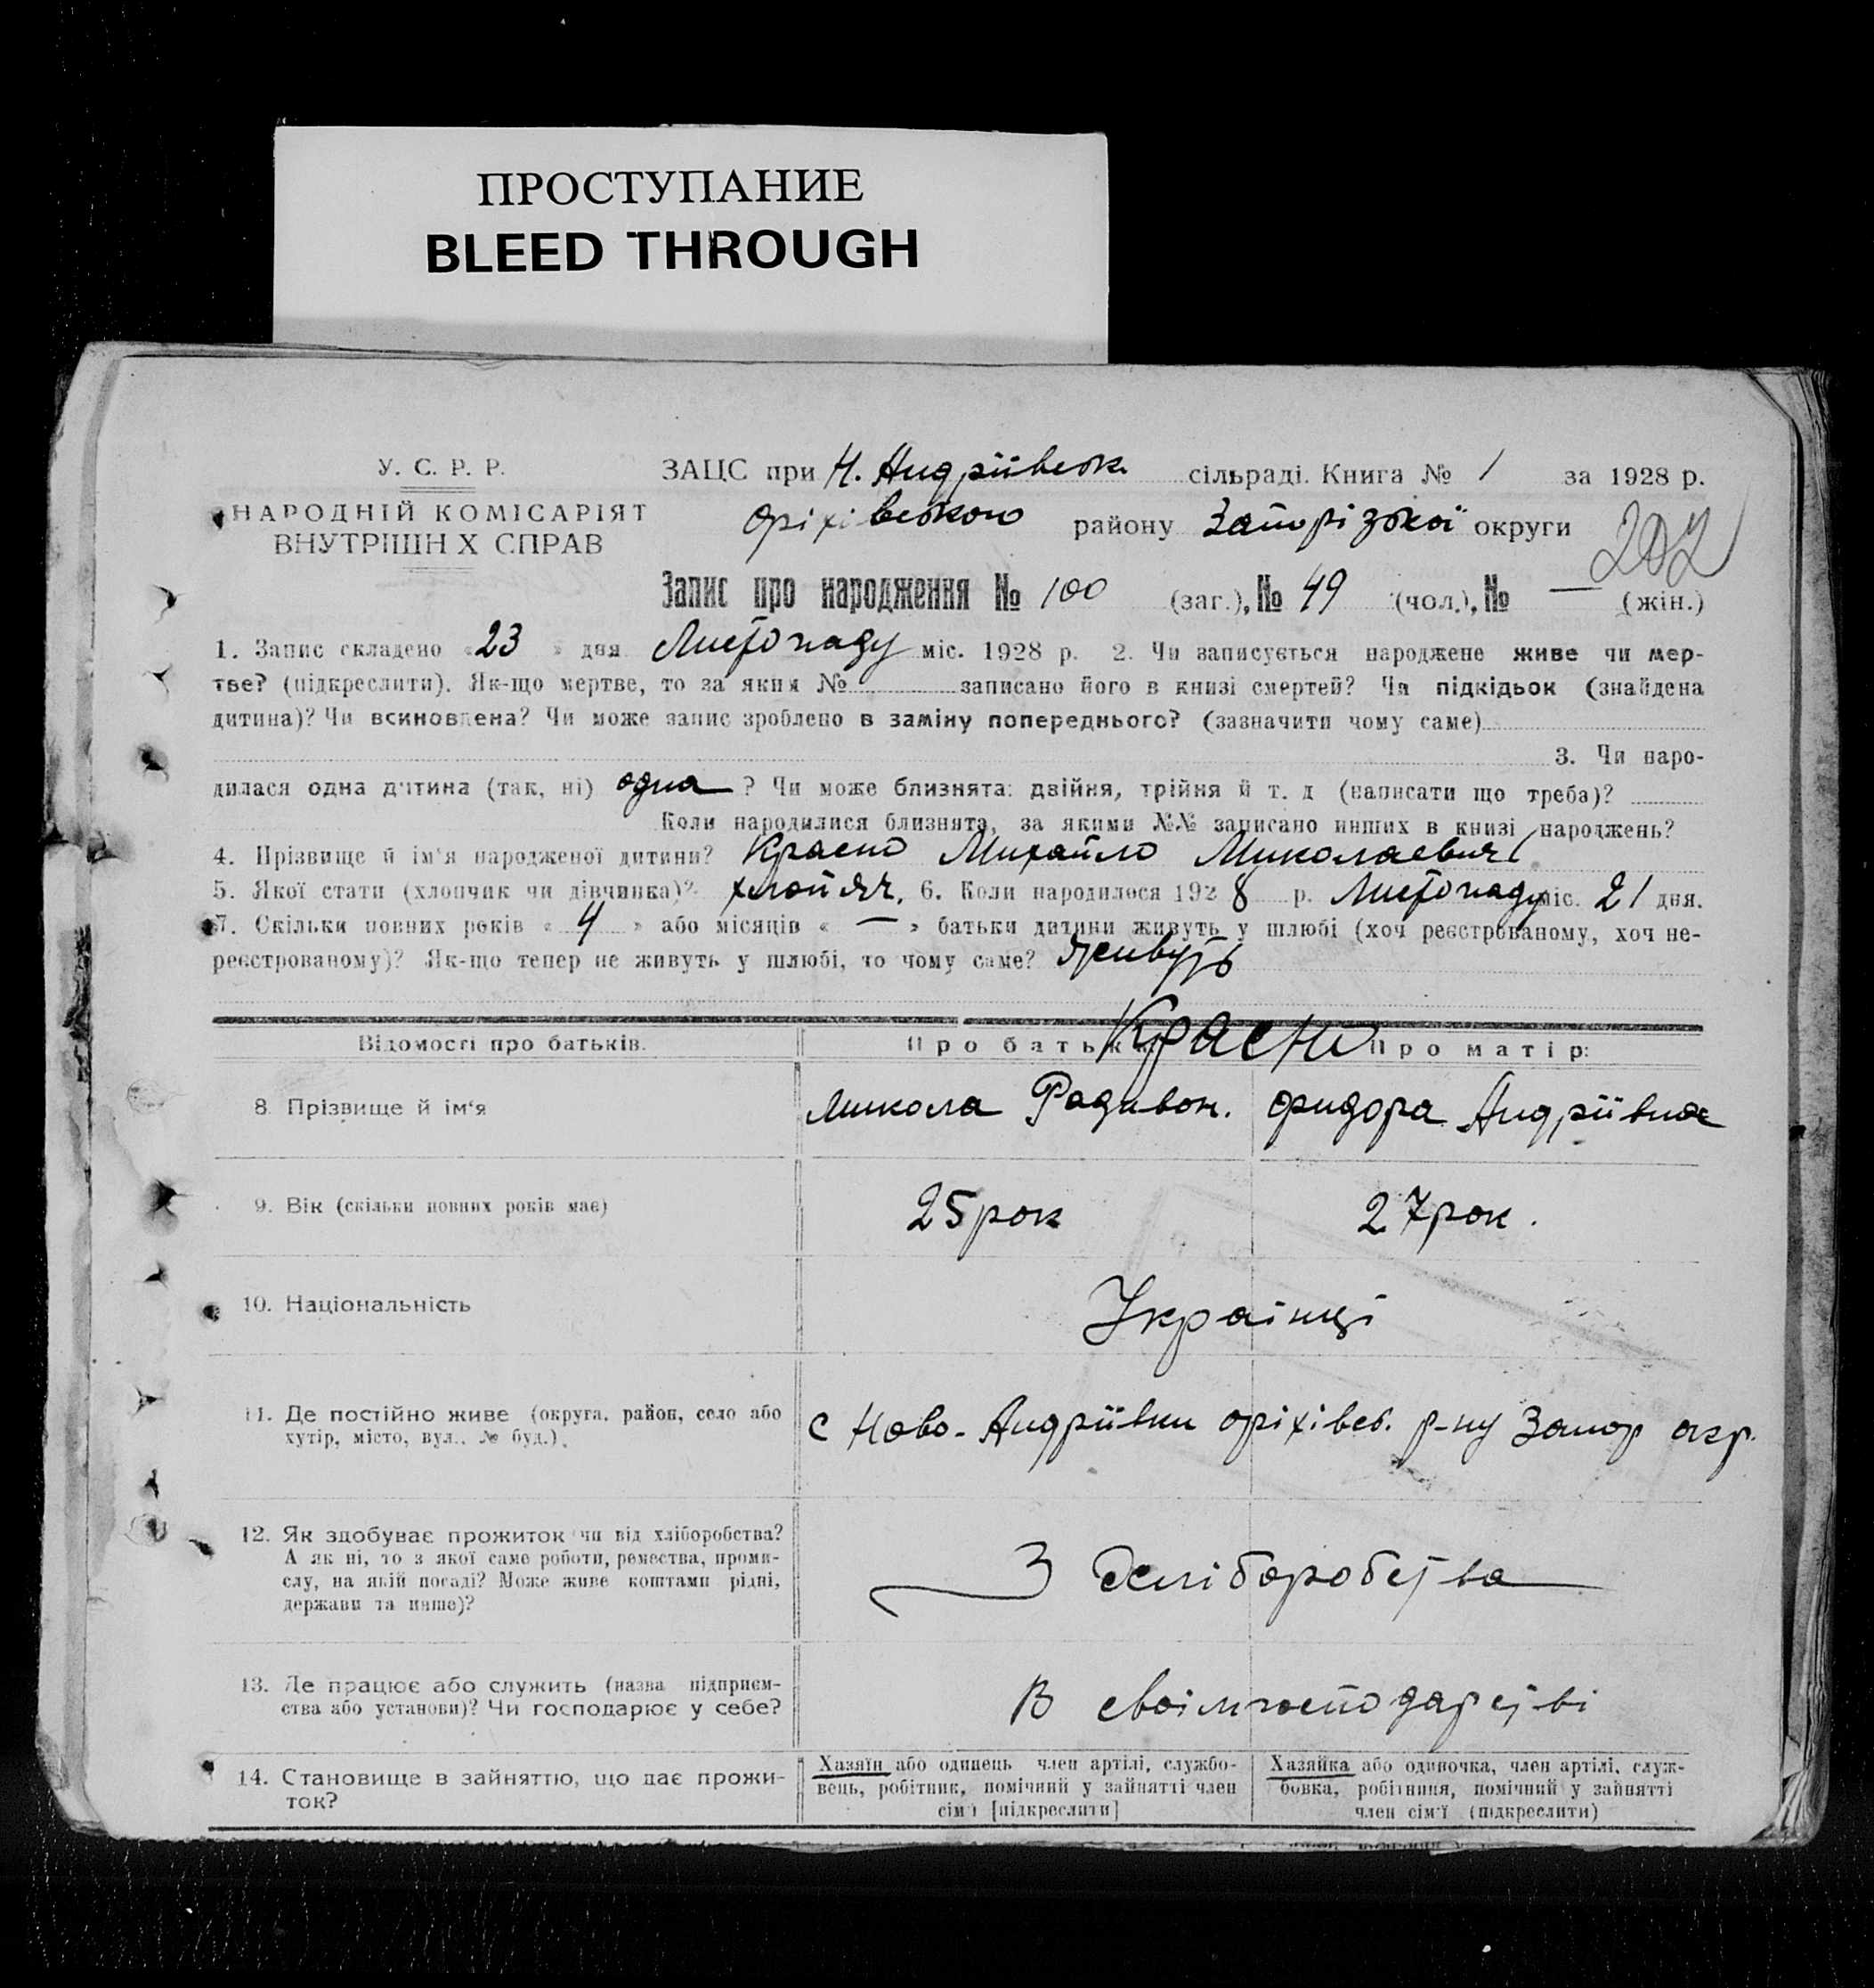 ПРОСТУПАНИЕ
BLEED THROUGH
У. С. Р. Р.
НАРОДНІЙ КОМІСАРІЯТ
ВНУТРІШН Х СПРАВ
ЗАЦС при Н. Андріївськ. сільраді. Книга № 1 за 1928 р.
Оріхівського району Запорізької округи
202
Запис про народження № 100 (заг.), № 49 (чол.), № — (жін.)
1. Запис складено «23» дня Листопаду міс. 1928 р. 2. Чи записується народжене живе чи мер-
тве? (підкреслити). Як-що мертве, то за яким № записано його в книзі смертей? Чи підкідьок (знайдена
дитина)? Чи всиновлена? Чи може запис зроблено в заміну попереднього? (зазначити чому саме)
3. Чи наро-
дилася одна дитина (так, ні) одна ? Чи може близнята: двійня, трійня й т. д (написати що треба)?
Коли народилися близнята, за якими №№ записано инших в книзі народжень?
4. Прізвище й ім'я народженої дитини? Михайло Миколаевич
5. Якої стати (хлопчик чи дівчинка)? хлопяч. 6. Коли народилося 1928 р. Листопаду міс. 21 дня.
7. Скільки повних років «4» або місяців «—» батьки дитини живуть у шлюбі (хоч реєстрованому, хоч не-
реєстрованому)? Як-що тепер не живуть у шлюбі, то чому саме? живуть
Відомості про батьків. Про батька: Про матір:
8. Прізвище й ім'я Микола Радивон. Фидора Андріївна
9. Вік (скільки повних років має) 25 рок 27 рок.
10. Національність Українці
11. Де постійно живе (округа, район, село або
хутір, місто, вул., № буд.). с Ново-Андріївки Оріхівсь. р-ну Запор окр.
12. Як здобуває прожиток чи від хліборобства?
А як ні, то з якої саме роботи, ремества, проми-
слу, на якій посаді? Може живе коштами рідні,
держави та инше)?
З хліборобства
13. Де працює або служить (назва підприєм-
ства або установи)? Чи господарює у себе?
В своім господарстві
14. Становище в зайняттю, що дає прожи-
ток?
Хазяїн або одинець член артілі, службо-
вець, робітник, помічний у зайнятті член
сім'ї [підкреслити]
Хазяйка або одиночка, член артілі, служ-
бовка, робітниця, помічний у зайнятті
член сім'ї (підкреслити)